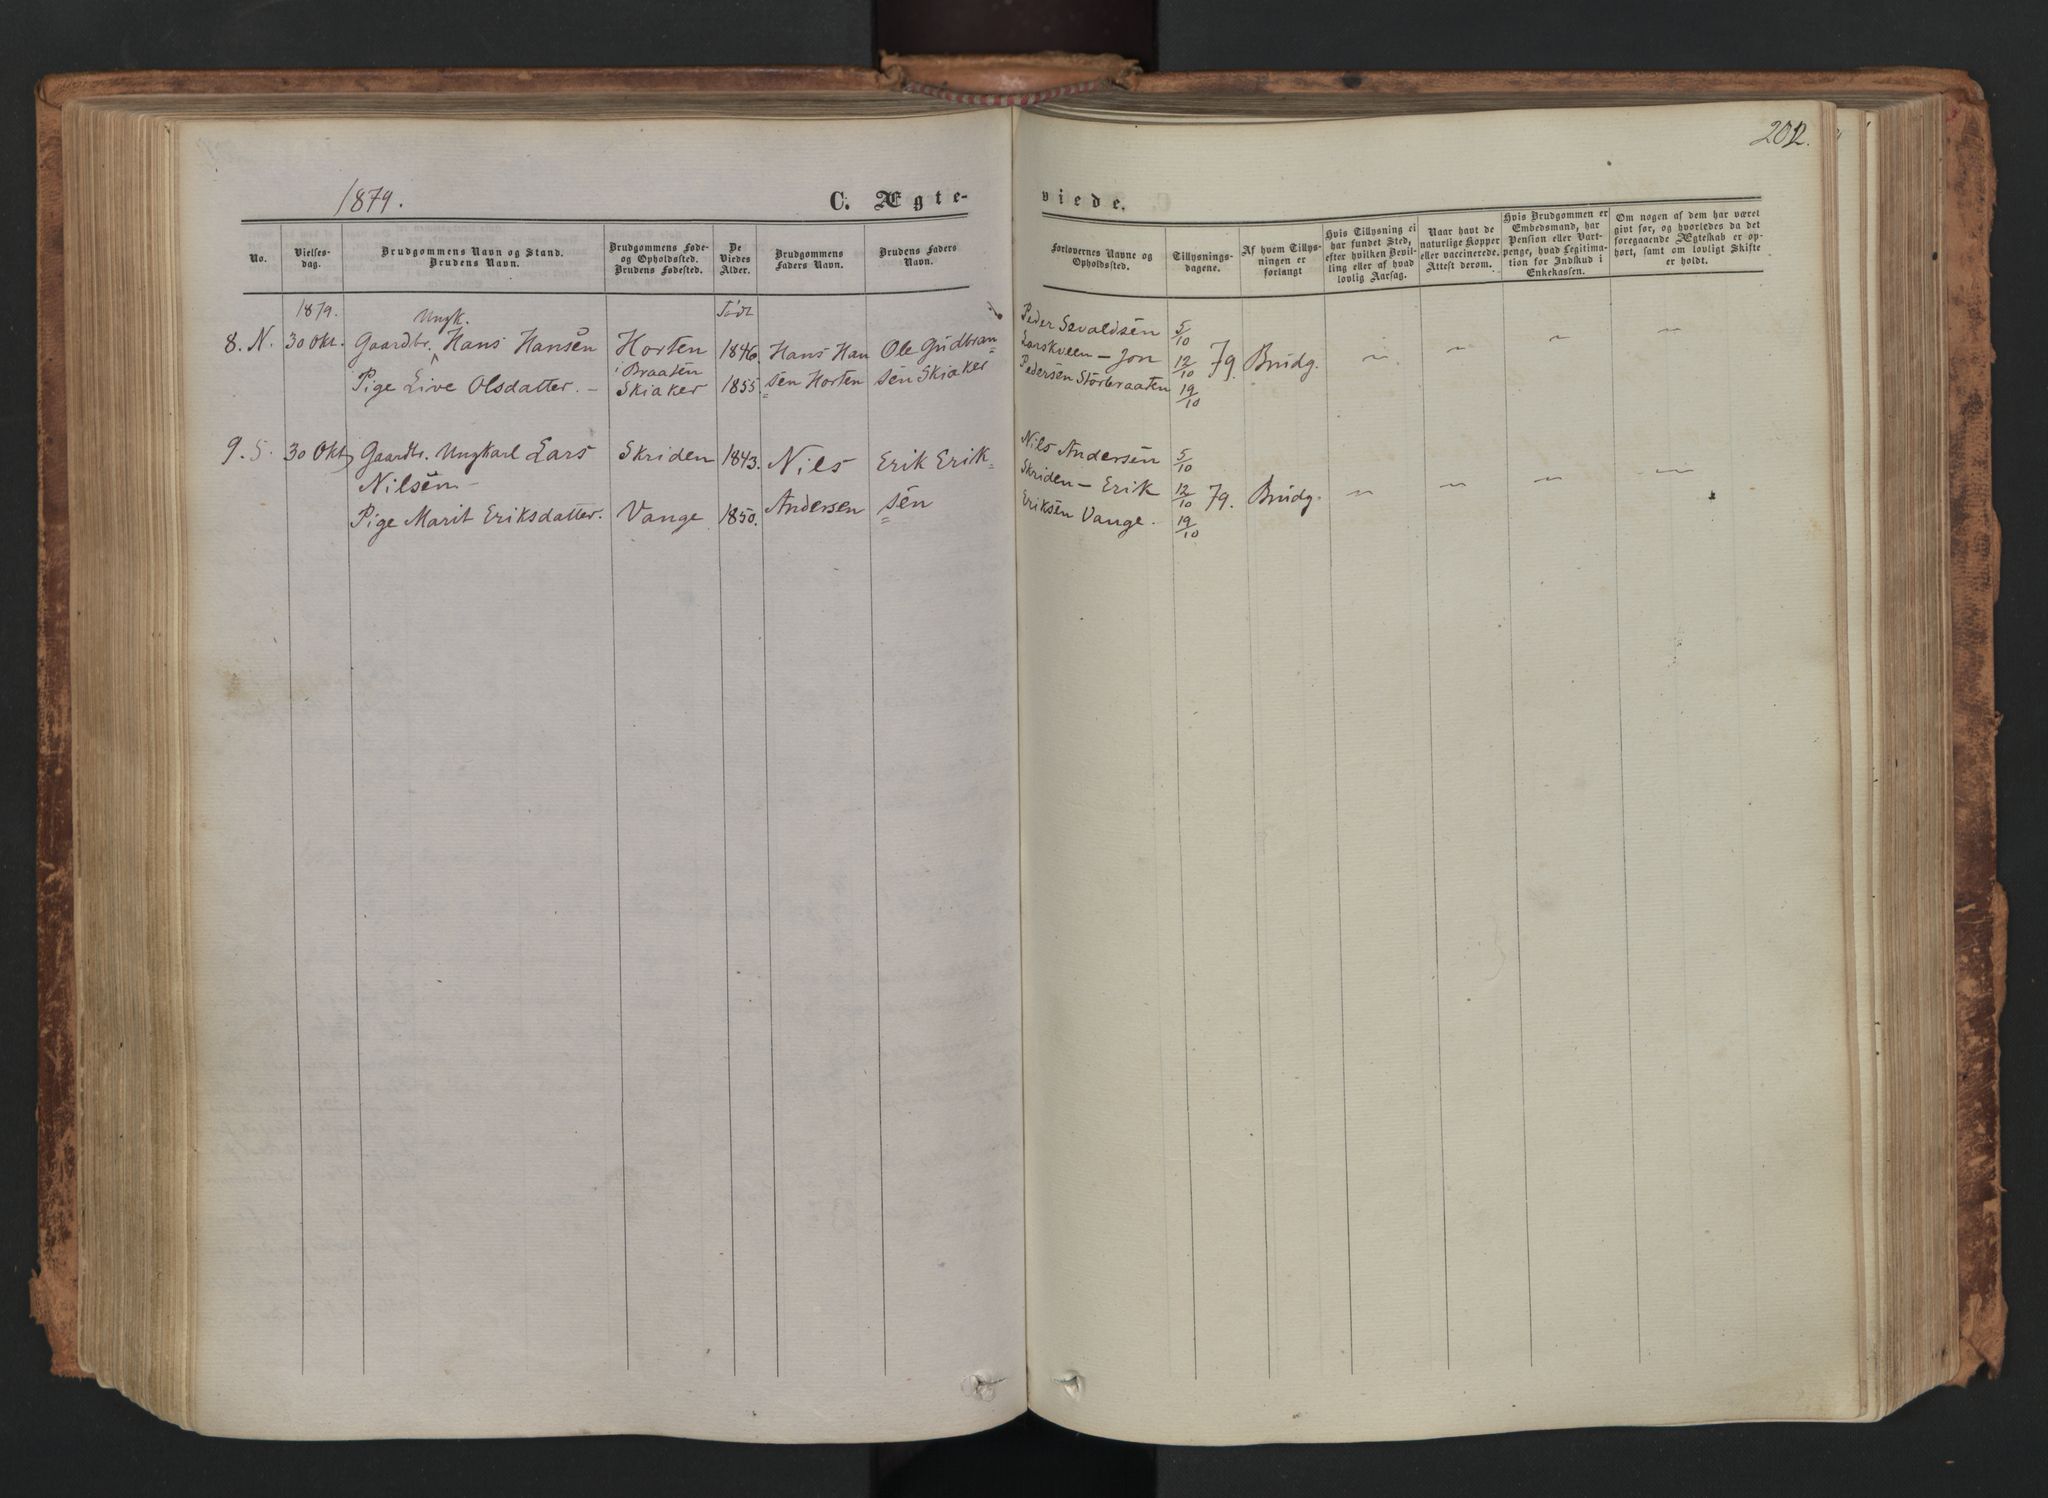 202.
1879.
C. Ægte-
viede.
No.
Vielses-
dag.
Brudgommens Navn og Stand.
Brudens Navn.
Brudgommens Føde-
og Opholdssted.
Brudens Fødested.
De
Viedes
Alder.
Brudgommens
Faders Navn.
Brudens Faders
Navn.
Forlovernes Navne og
Opholdssted.
Tillysnings-
dagene.
Af hvem Tillys-
ningen er
forlangt
Hvis Tillysning ei
har fundet Sted,
efter hvilken Bevil-
ling eller af hvad
lovlig Aarsag.
Naar havt de
naturlige Kopper
eller vaccinerede.
Attest derom.
Hvis Brudgommen er
Embedsmand, har
Pension eller Vart-
penge, hvad Legitima-
tion for Indskud i
Enkekassen.
Om nogen af dem har været
gift før, og hvorledes da det
foregaaende Ægteskab er op-
hørt, samt om lovligt Skifte
er holdt.
1879.
8. N.
30 Okt.
Ungk.
Gaardbr. Hans Hansen
Pige Live Olsdatter. –
Horten
i Braaten
Skiaker
Født
1846
1855.
Hans Han
sen Horten
Ole Gudbran=
sen Skiaker
Peder Sevaldsen
Larskveen – Jon
Pedersen Storbraaten
5/10
12/10 79.
19/10
Brudg.
9. S.
30 Okt
Gaardbr. Ungkarl Lars
Nilsen –
Pige Marit Eriksdatter.
Skriden
Vange
1843.
1850.
Nils
Andersen
Erik Erik=
sen
Nils Andersen
Skriden – Erik
Eriksen Vange.
5/10
12/10 79.
19/10
Brudg.